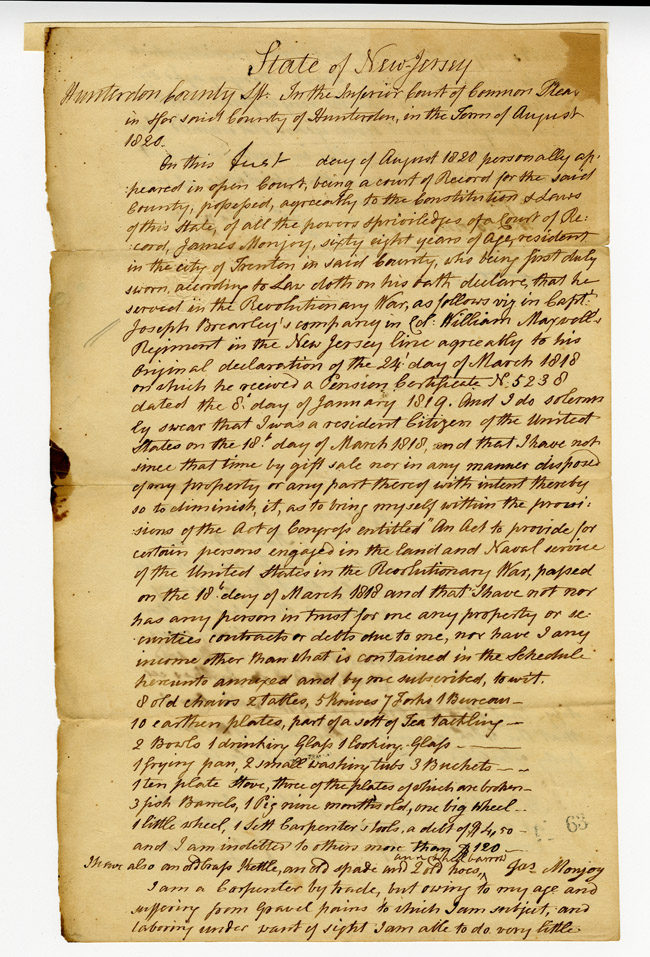 State of New Jersey
Hunterdon County Sst. In the Inferior Court of Common Pleas
in & for said County of Hunterdon, in the Term of August
1820.
On this first day of August 1820 personally ap-
peared in open Court, being a court of Record for the said
County, possessed, agreeatly to the Constitution & Laws
of this State, of all the powers & priviledges of a Court of Re-
cord, James Monjoy, sixty eight years of age, resident
in the city of Trenton in said County, who being first duly
sworn, according to Law doth on his oath declare, that he
served in the Revolutionary War, as follows viz in Capt.
Joseph Brearley's company in Col. William Maxwell's
Regiment in the New Jersey line agreeatly to his
original declaration of the 24t day of March 1818
on which he receved a Pension Certificate No. 5238
dated the 8t day of January 1819. And I do solemn
ly swear that I was a resident Citizen of the United
States on the 18t day of March 1818, and that I have not
since that time by gift sale nor in any manner disposed
of any property or any part thereof with intent thereby
so to diminish it, as to bring myself within the provi-
sions of the Act of Congress entitled "An Act to provide for
certain persons engaged in the land and Naval service
of the United States in the Revolutionary War, passed
on the 18t day of March 1818 and that I have not nor
has any person in trust for me any property or se-
curities contracts or debts due to me, nor have I any
income other than what is contained in the Schedule
hereunto annexed and by me subscribed, to wit.
8 old chairs 2 tables, 5 Knives 7 Forks 1 Bureau —
10 earthen plates, part of a sett of Tea tackling —
2 Bowls 1 drinking Glass 1 looking-Glass — —
1 frying pan, 2 small washing tubs 3 Buckets — —
1 ten plate Stove, three of the plates of which are broken —
3 fish Barrels, 1 Pig nine months old, one big wheel —
1 little wheel, 1 Sett Carpenter's tools, a debt of $4,50 —
63
and I am indetted to others more than $120 —
an old wheel barrow
I have also an old brass Kettle, an old spade and 2 old hoes, Jas Monjoy
I am a Carpenter by trade, but owing to my age and
suffering from Gravel pains to which I am subject, and
laboring under want of sight I am able to do very little